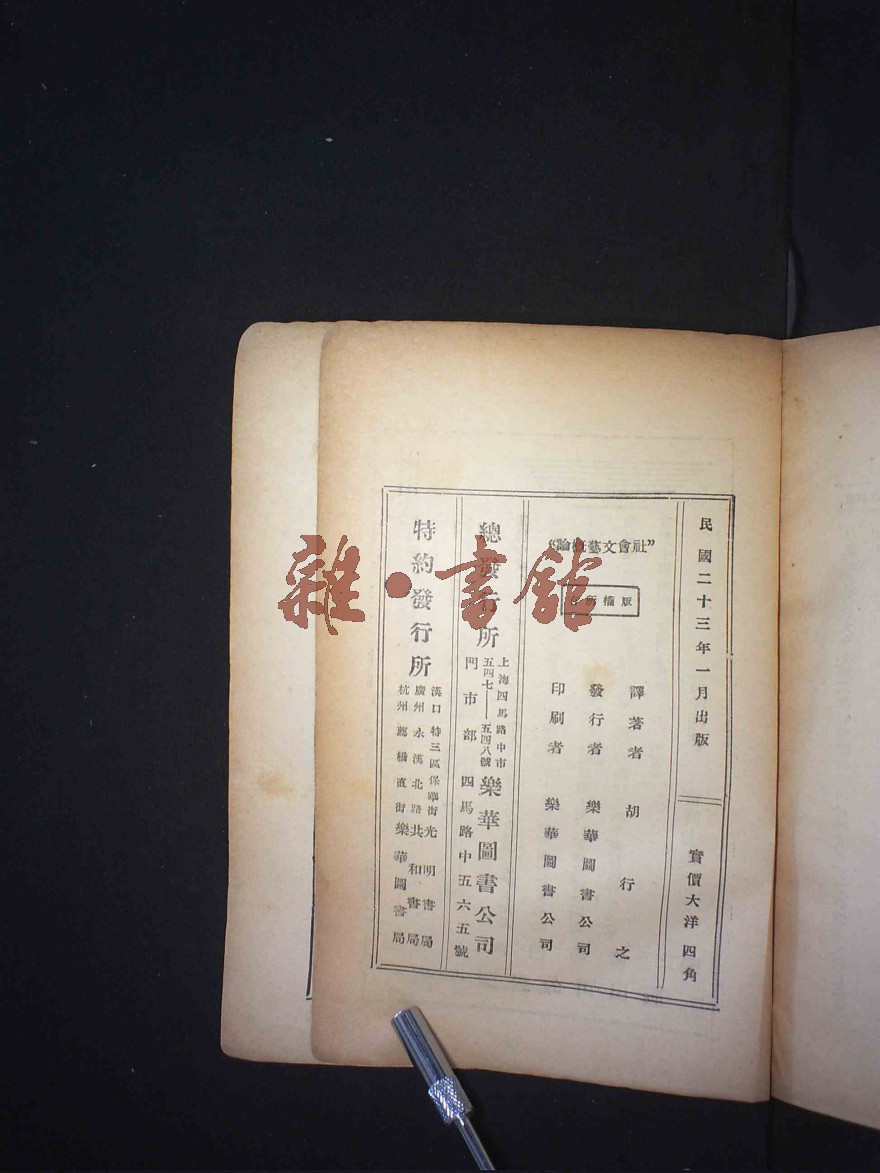 民國二十三年一月出版
實價大洋四角
“社會文藝概論”
版權所有
譯著者 胡行之
發行者 樂華圖書公司
印刷者 樂華圖書公司
總發行所
上海四馬路中市
五四七——五四八號
樂華圖書公司
門市部 四馬路中五六五號
特約發行所
漢口 特三區保華街光明書局
廣州 永漢北路共和書局
杭州 薦橋直街樂華圖書局
雜·書館